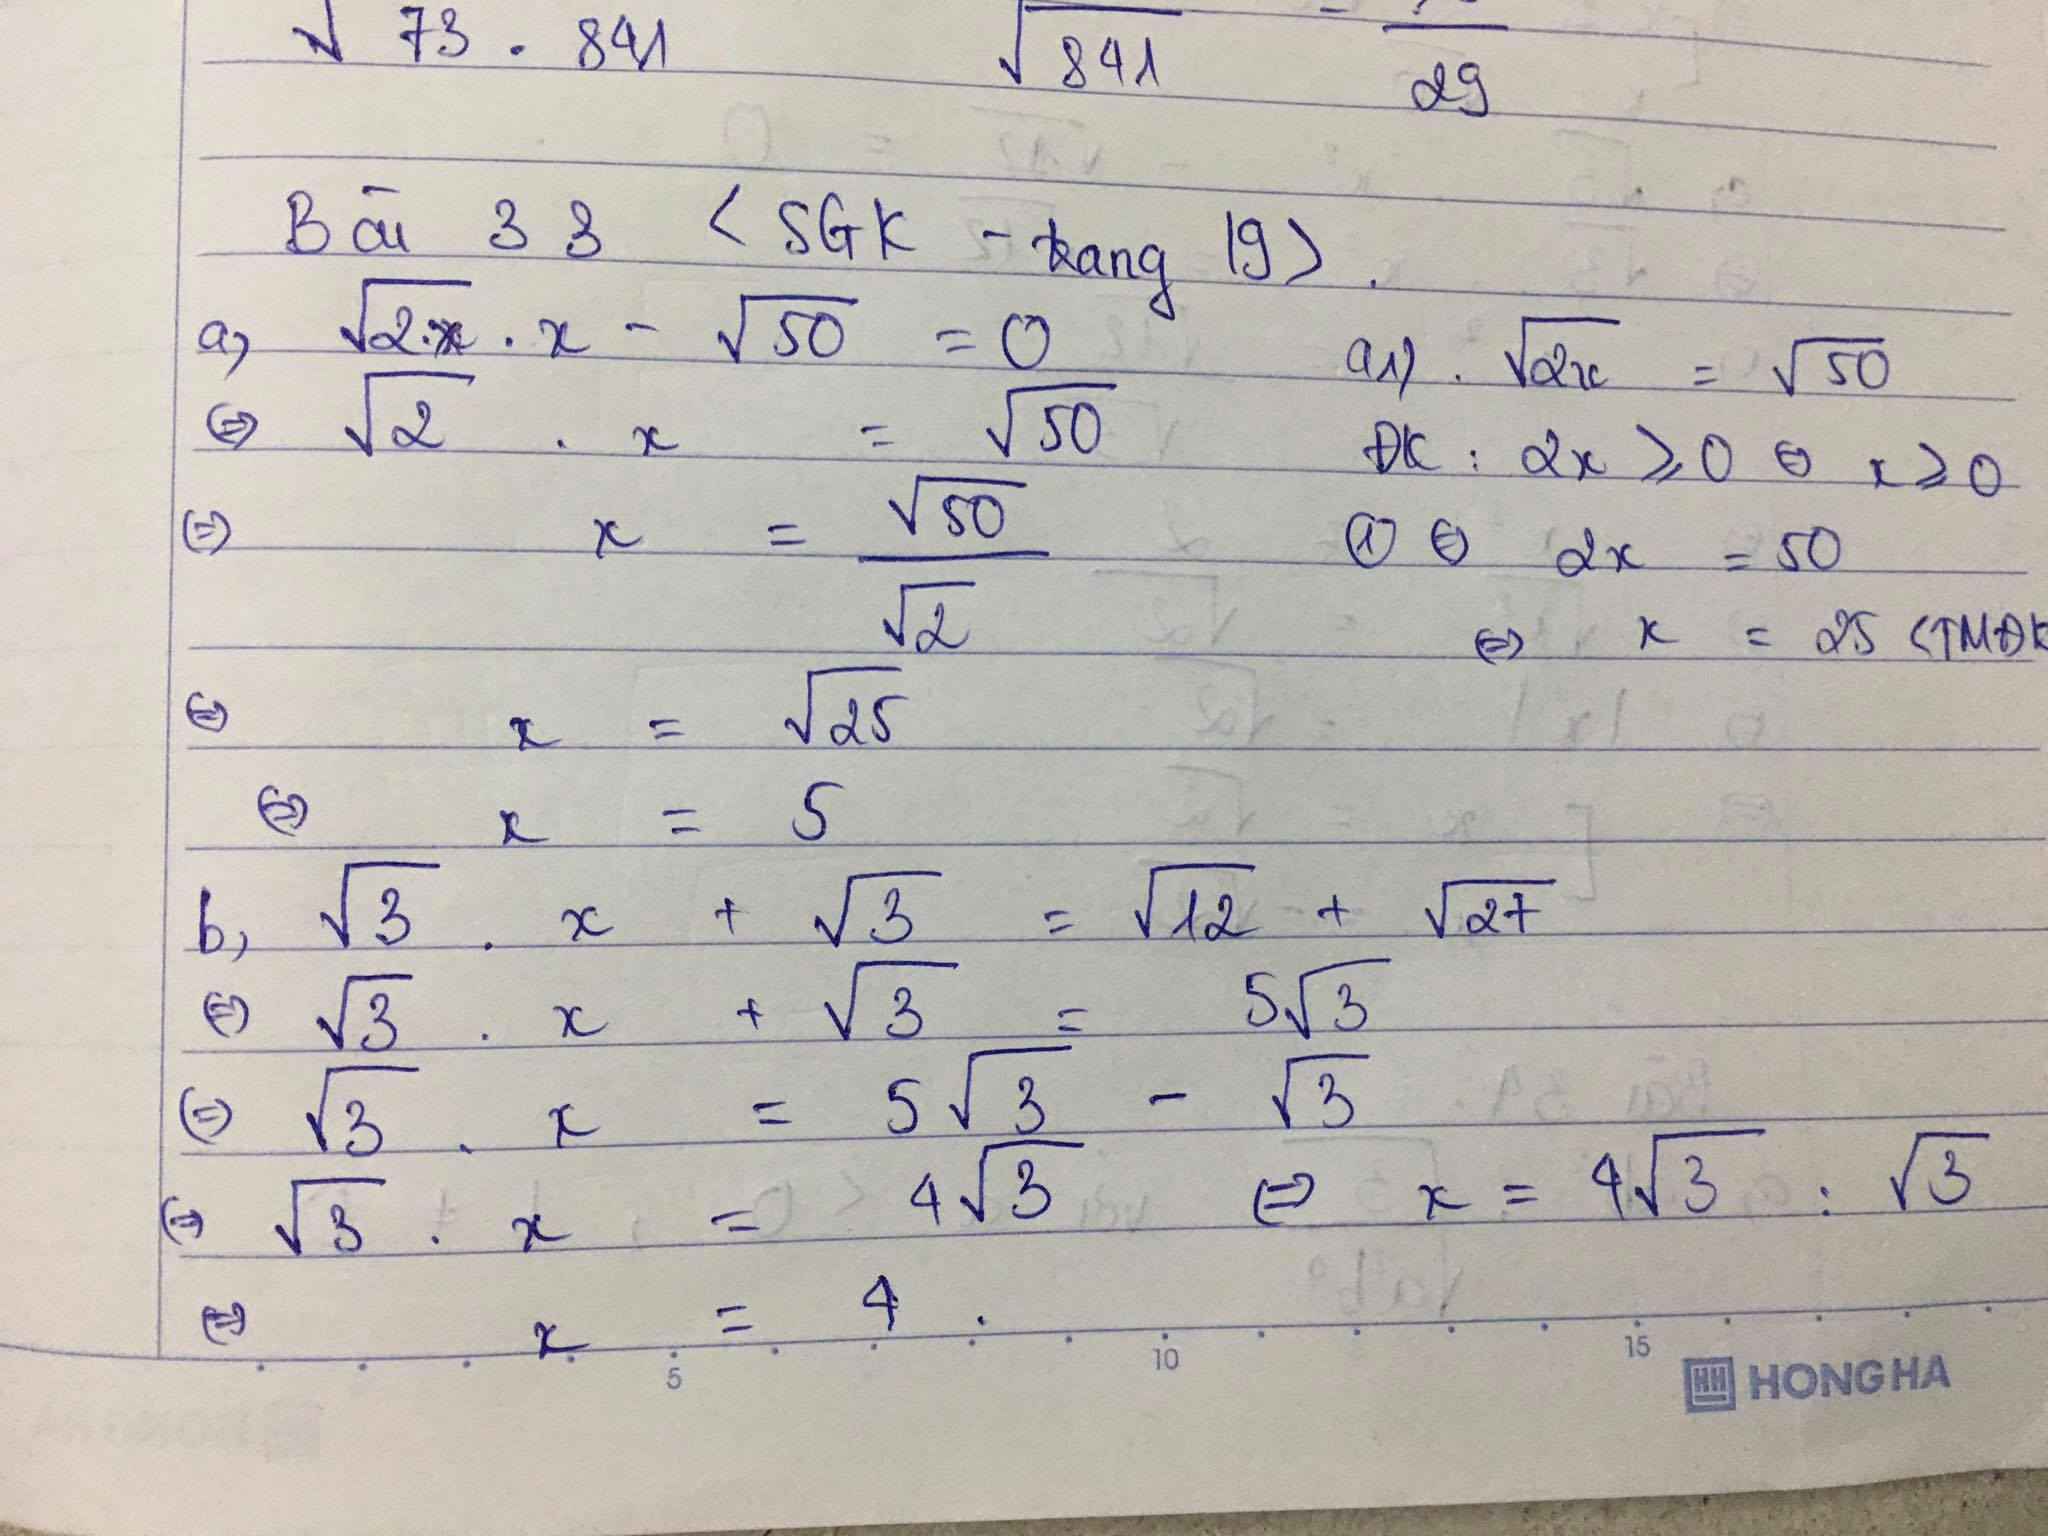 √73 . 841 √841 = 29
Bài 33 <SGK - trang 19>.
a, √2 . x - √50 = 0
⇔ √2 . x = √50
⇔ x = √50 / √2
⇔ x = √25
⇔ x = 5
a1) . √2x = √50
ĐK : 2x ≥ 0 ⇔ x ≥ 0
(1) ⇔ 2x = 50
⇔ x = 25 <TMĐK
b, √3 . x + √3 = √12 + √27
⇔ √3 . x + √3 = 5√3
⇔ √3 . x = 5√3 - √3
⇔ √3 . x = 4√3 ⇔ x = 4√3 : √3
⇔ x = 4 .
5 10 15
HH HONG HA